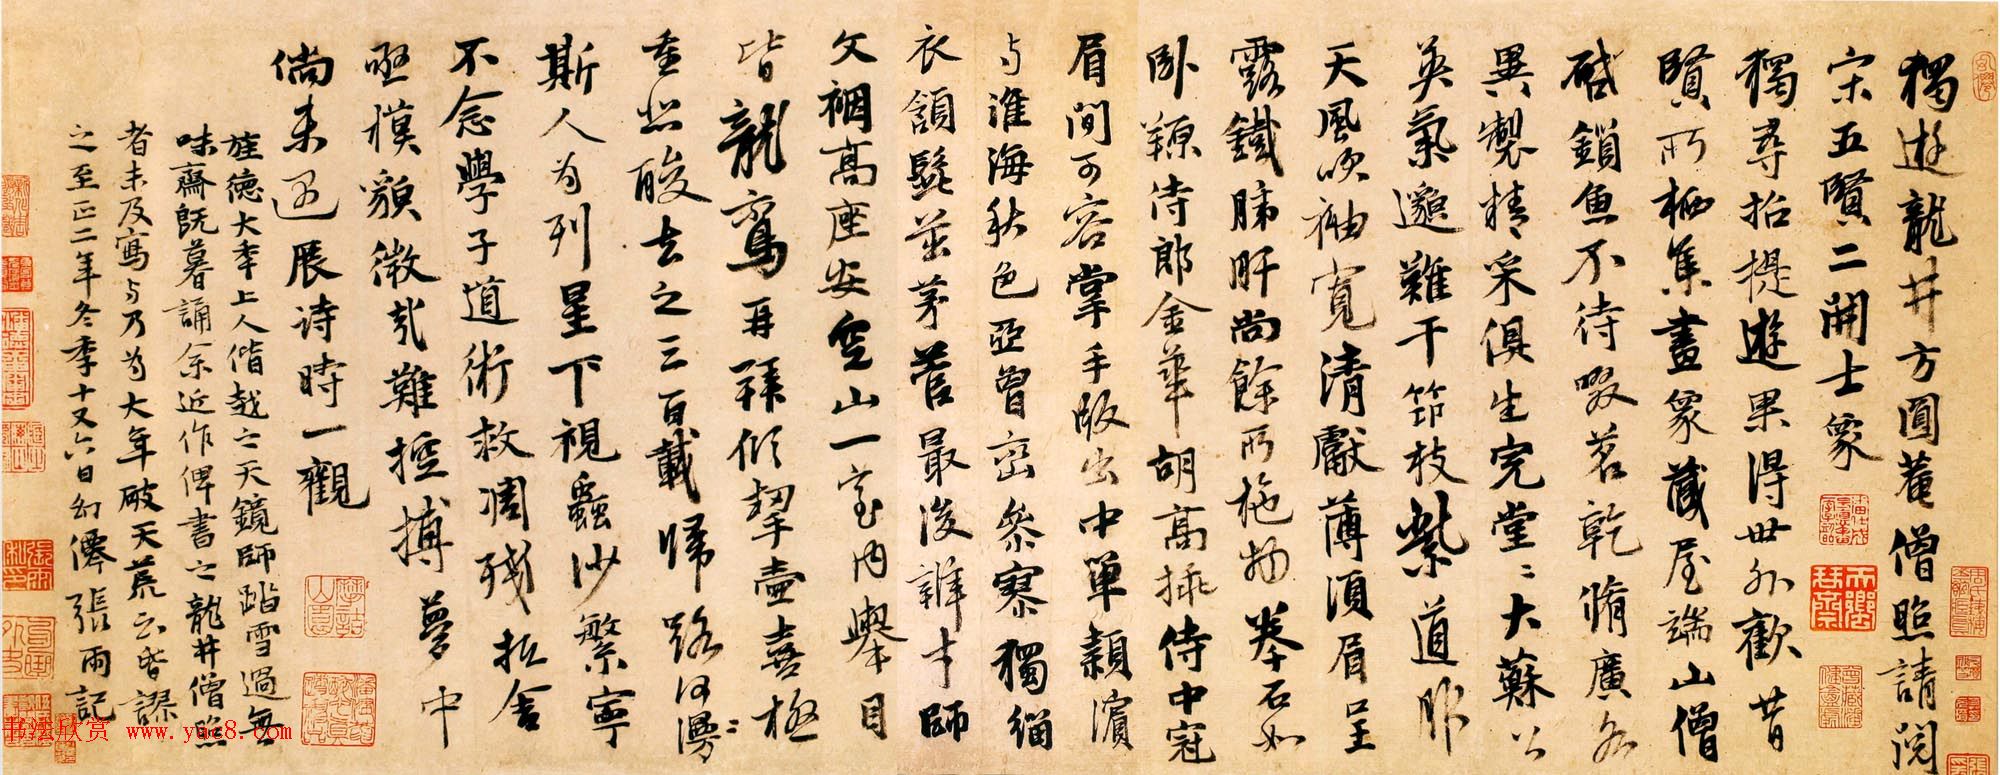 獨遊龍井方圓菴僧照請閱
宋五賢二開士象
獨尋招提遊果得世外歡昔
賢所栖集畫象藏屋端山僧
啟鎖魚不待啜茗乾脩廣各
異製精采俱生完堂〻大蘇公
英氣邈難干筇枝紫道服
天風吹袖寬清獻薄須眉呈
露鐵肺肝尚餘所施物拳石如
臥羱侍郎金華胡高揷侍中冠
眉間可容掌手版出中單潁濱
与淮海秋色亞曾巒參寥獨緇
衣頷髭茁茅菅最後辯才師
文裀高座安空山一室內舉目
皆龍鸞再拜傾挈壺喜極
重悲酸去之三百載歸路何漫〻
斯人為列星下視蟲沙繁寧
不念學子道術救凋殘拯舍
亟摸貌微哉難控摶夢中
倘來展詩時一觀
旌德大季上人偕越之天鏡師踏雪過無
味齋既暮誦余近作俾書之龍井僧照
者未及寫与乃為大年破天荒云皆謬
之至正二年冬季十又六日幻僊張雨記
书法欣赏 www.yac8.com